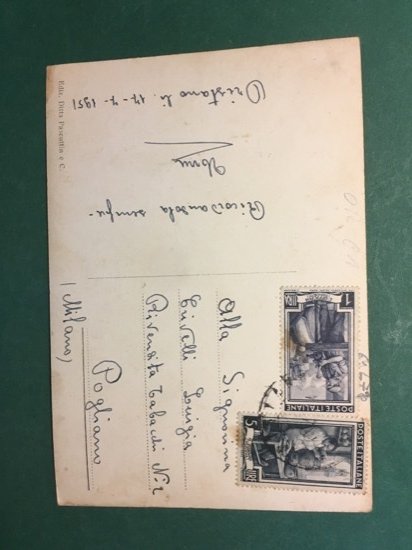 Oristano li. 17-7-1951
Ricordandola sempre-
Edit. Ditta Pascuttin e C.
Alla Signorina
Crivelli Luigia
Rivendita Tabacchi N. 2
Pogliano
(Milano)
POSTE ITALIANE
LIRE 1
POSTE ITALIANE
LIRE 5